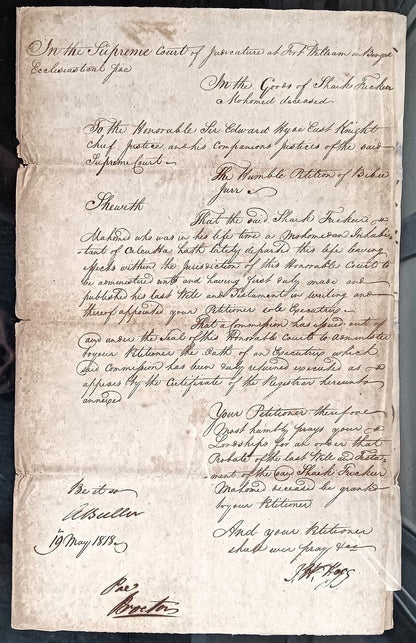 In the Supreme Court of Judicature at Fort William in Bengal
Ecclesiastical
In the Goods of Shaik Fucker
Mahomed deceased
To the Honorable Sir Edward Hyde East Knight
Chief Justice and his Companions Justices of the said
Supreme Court
The Humble Petition of Bibee
Jurr
Sheweth
That the said Shaik Fucker
Mahomed who was in his life time a Mahomedan Inhabi-
tant of Calcutta hath lately departed this life leaving
effects within the Jurisdiction of this Honorable Court to
be administered unto and having first duly made and
published his last Will and Testament in writing and
thereof appointed your Petitioner sole Executrix
That a Commission has issued out of
and under the Seal of this Honorable Court to Administer
to your Petitioner the Oath of an Executrix which
said Commission has been duly returned executed as
appears by the Certificate of the Registrar hereunto
annexed
Your Petitioner therefore
most humbly prays your
Lordships for an order that
Probate of the last Will and Testa-
ment of the said Shaik Fucker
Mahomed deceased be granted
to your Petitioner
Be it so
19 May 1818
And your Petitioner
shall ever pray &ca
Proctor